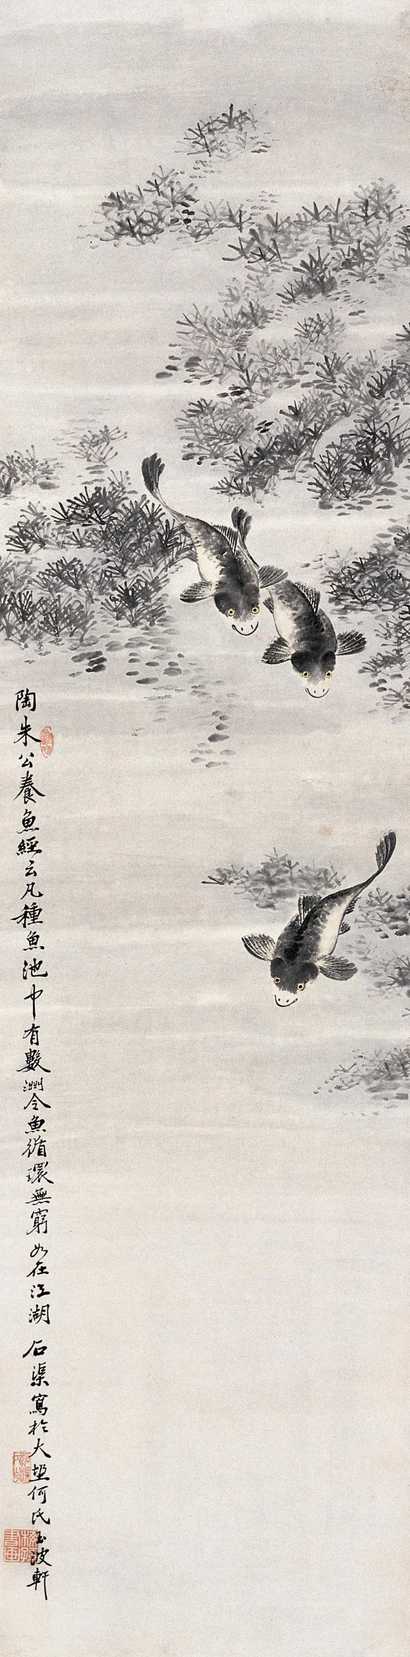 陶朱公養魚經云凡種魚池中有數洲令魚循環無窮如在江湖 石渠寫於大塱何氏玉波軒